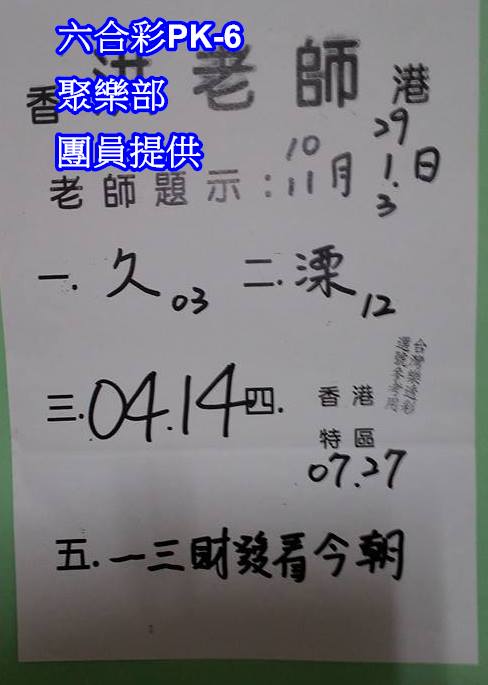 六合彩PK-6
香 洪老師 港
聚樂部
團員提供
老師題示:10 11月 29 1.3日
一.久03 二.溧12
台灣樂透彩
選號參考用
三.04.14 四.香港
特區
07.27
五.一三財發看今朝